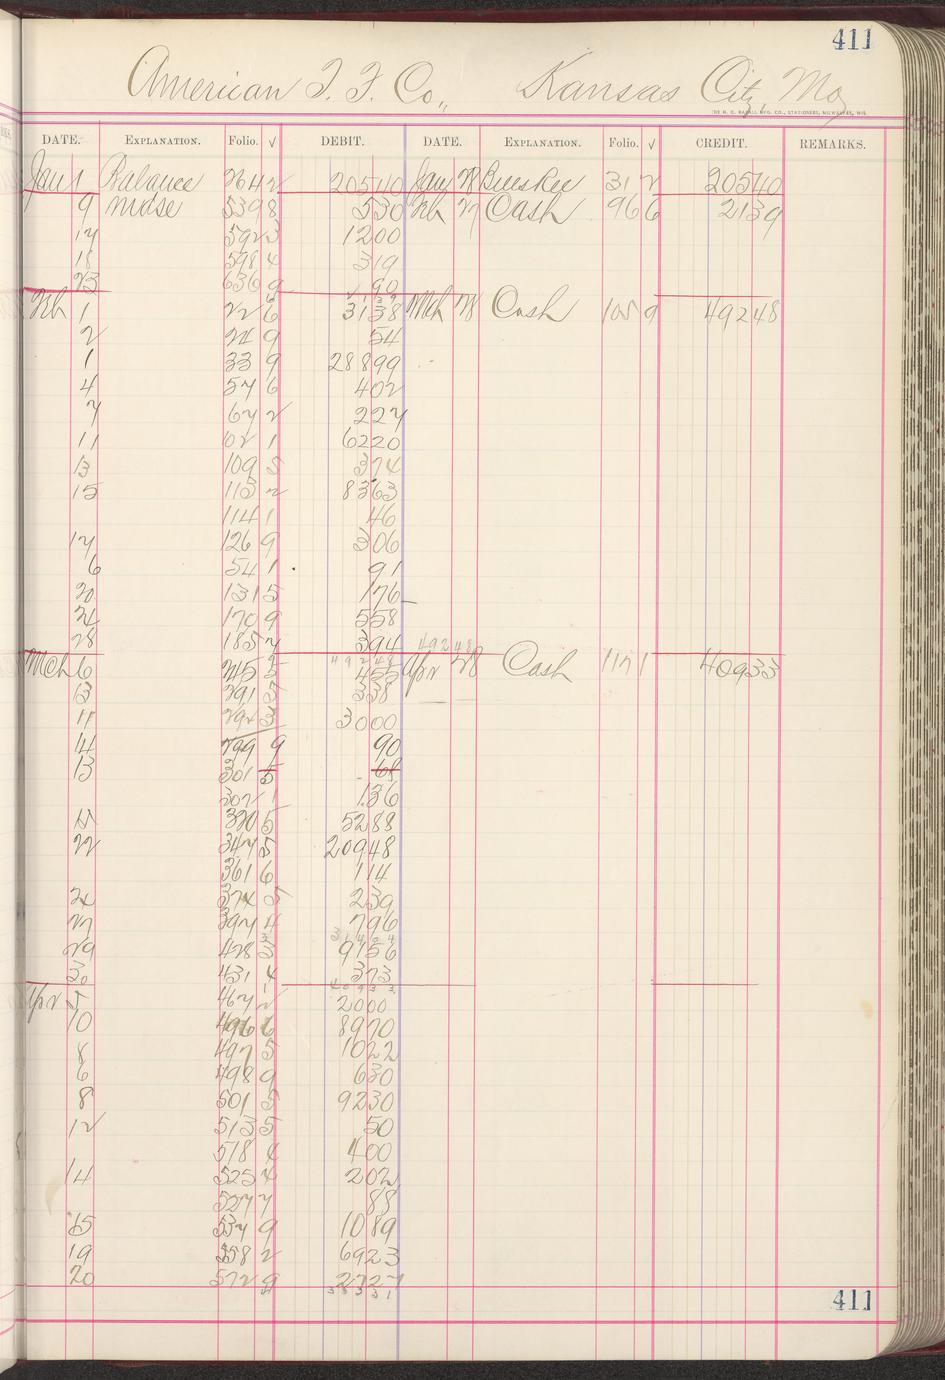 411
American T. F. Co., Kansas City, Mo
DATE. EXPLANATION. Folio. √ DEBIT. DATE. EXPLANATION. Folio. √ CREDIT. REMARKS.
Jany 1 Balance 264 2 20540 Jany 28 31 2 20540
9 mdse 539 8 530 Feb 27 Cash 96 6 2139
17 592 3 1200
18 598 4 319
23 636 9 90
Feb 1 22 6 3138 Mch 28 Cash 105 9 49248
2 24 9 54
1 33 9 28899
4 57 6 402
7 67 2 227
11 102 1 6220
13 109 5 374
15 113 2 8363
114 1 46
17 126 9 306
6 54 1 91
20 131 5 176
24 170 9 558
28 185 7 394 49248
49248
Mch 6 245 2 455 Apr 28 Cash 117 1 40933
13 291 5 338
11 292 3 3000
14 299 9 90
13 301 5 68
302 1 136
15 320 5 5288
22 347 5 20948
361 6 114
24 374 5 239
27 397 4 796
29 428 3 9156
30 431 4 373
40933
Apr 5 467 2 2000
10 496 6 8970
8 497 5 1022
6 498 9 630
8 501 5 9230
12 513 5 50
518 4 400
14 525 4 202
527 7 88
15 537 9 1089
19 558 2 6923
20 572 9 2727
33331
411